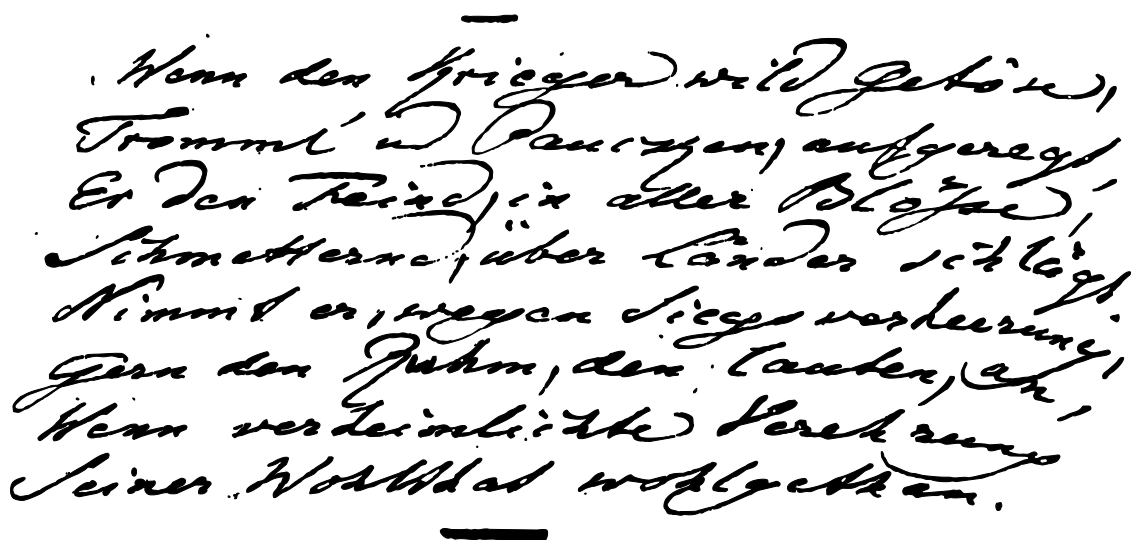 Wenn den Krieger wild getöse,
Tromml' u Paucken, aufgeregt
Er den Feind, in aller Blöße,
Schmetternd, über Länder schlägt
Nimmt er, wegen Siegs verheerung,
gern den Ruhm, den lauten, an,
Wenn verheimlichte Verehrung
Seiner Wohlthat wohlgethan.